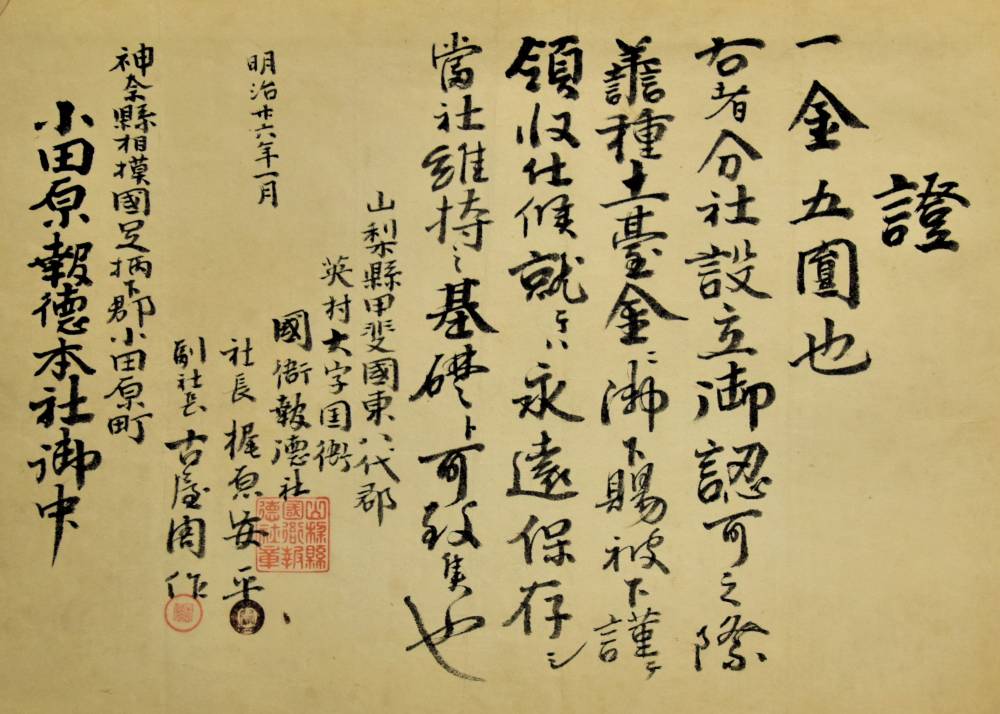 證
一金五圓也
右者分社設立御認可之際
善種土臺金ニ御下賜被下謹テ
領収仕候就テハ永遠保存シ
當社維持之基礎ト可致候也
山梨縣甲斐國東八代郡
英村大字国衙
國衙報德社
社長 梶原安平
副社長 古屋周作
明治廿六年一月
神奈縣相摸國足柄下郡小田原町
小田原報德本社御中
山梨縣
國衙報
德社章